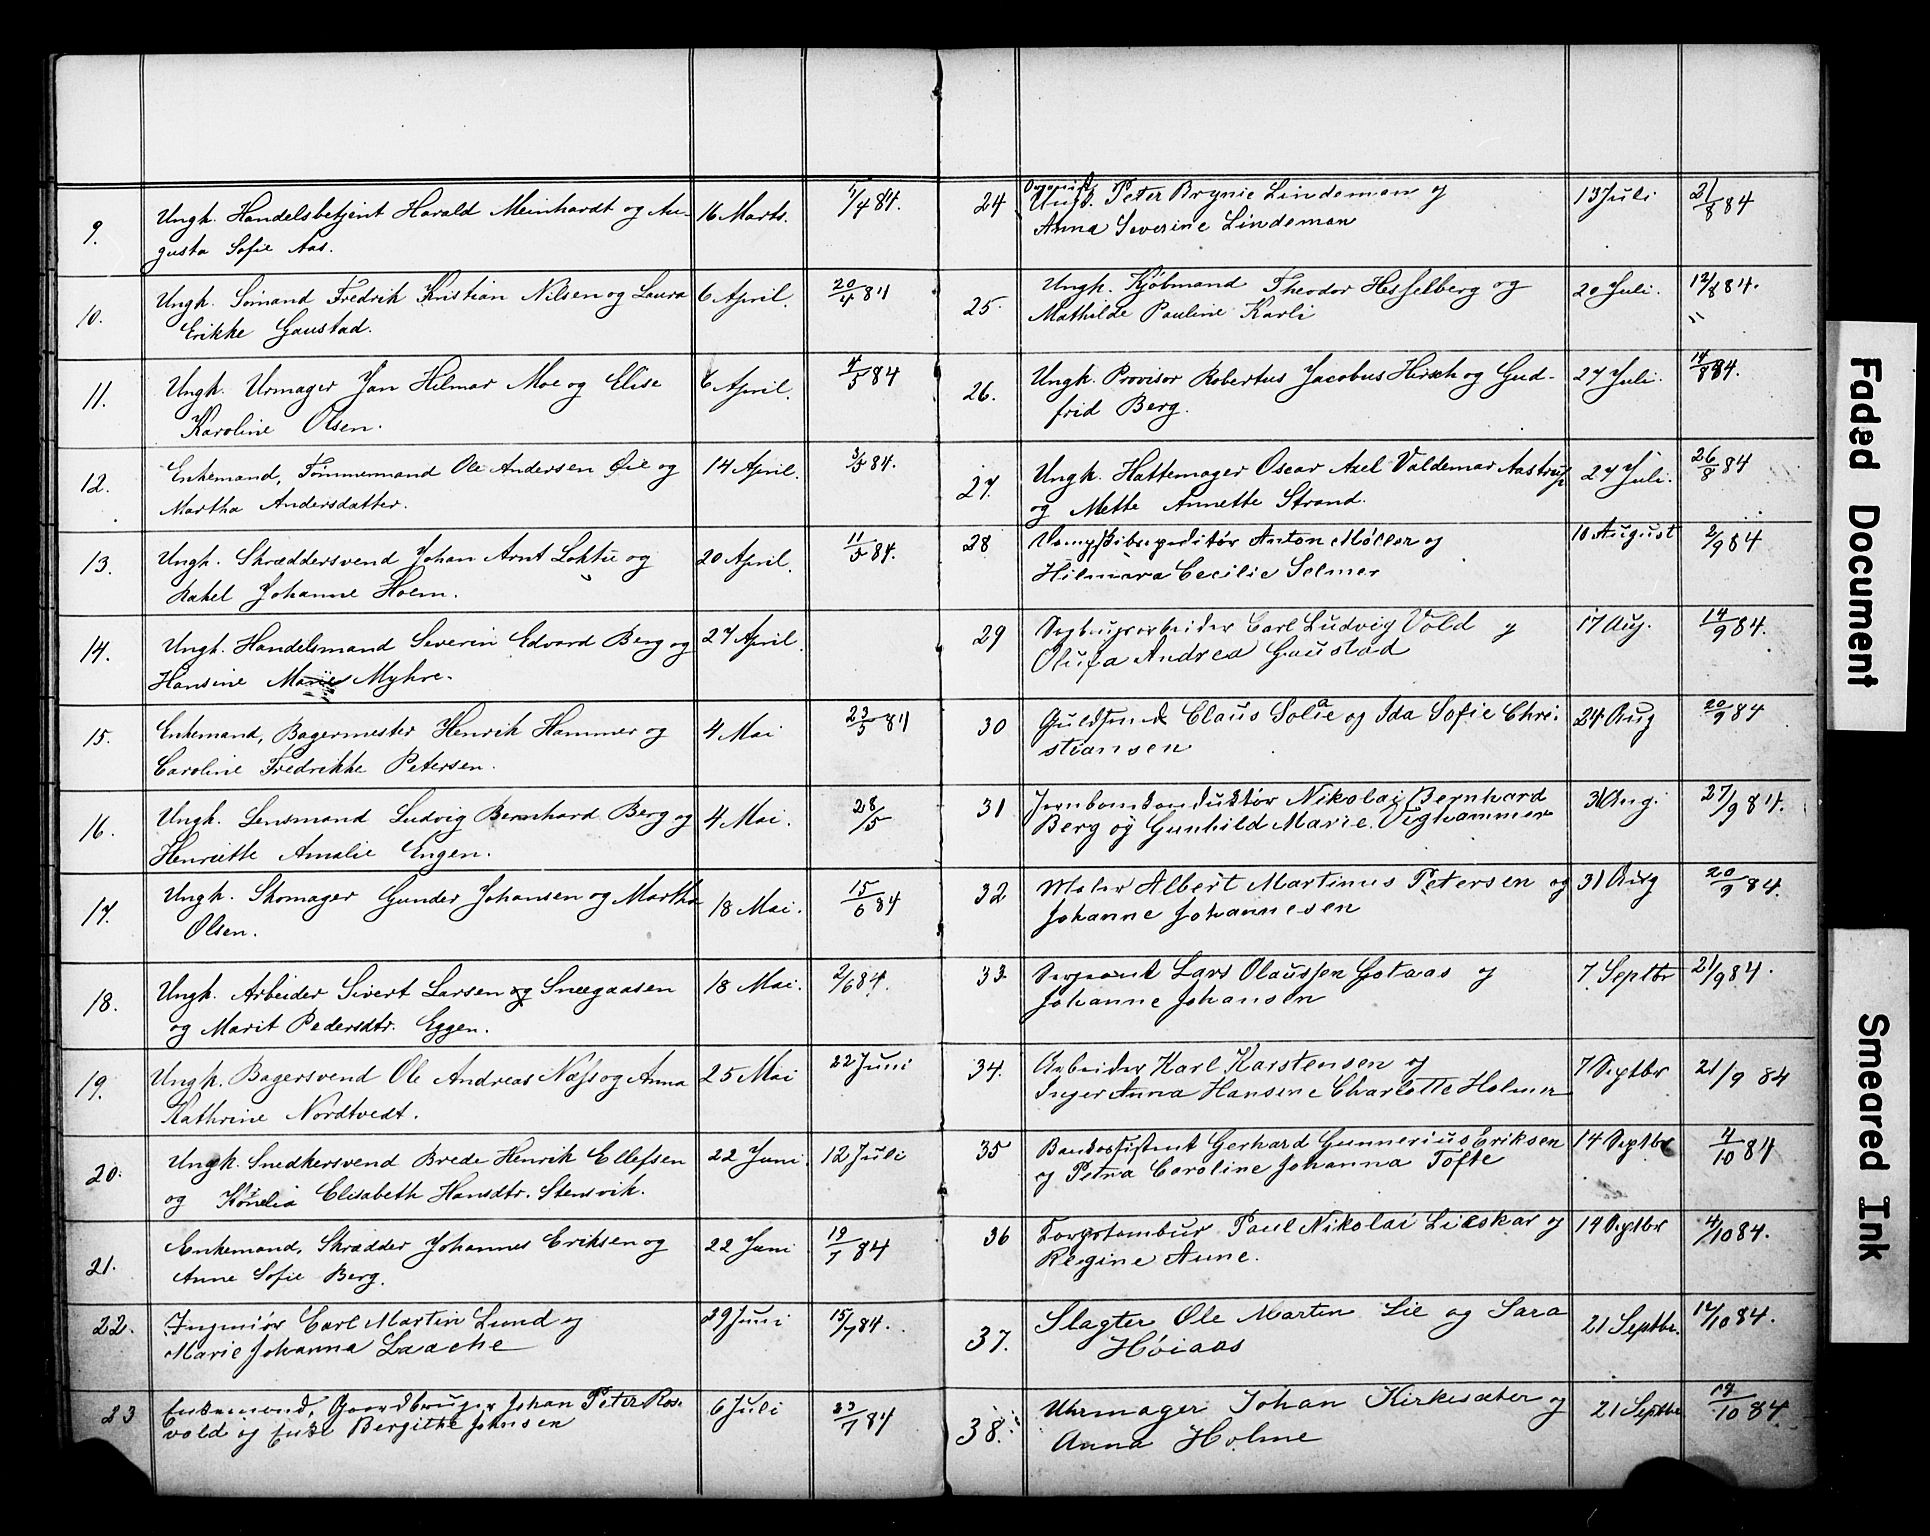 9. Ungk. Handelsbetjent Harald Meinhardt og Au- 16 Marts. 1/4 84.
gusta Sofie Aas.
10. Ungk. Sømand Fredrik Kristian Nilsen og Laura 6 April. 20/4 84
Erikke Gaustad.
11. Ungk. Urmager Jan Hilmar Moe og Elise 6 April. 4/5 84
Karoline Olsen.
12. Enkemand, Tømmermand Ole Andersen Øie og 14 April. 3/5 84.
Martha Andersdatter.
13. Ungk. Skræddersvend Johan Arnt Loktu og 20 April. 11/5 84.
Rakel Johanne Holm.
14. Ungk. Handelsmand Severin Edvard Berg og 27 April.
Hansine Marie Myhre.
15. Enkemand, Bagermester Henrik Hammer og 4 Mai 23/5 84
Caroline Fredrikke Petersen.
16. Ungk. Lensmand Ludvig Bernhard Berg og 4 Mai. 28/5
Henriette Amalie Engen.
17. Ungk. Skomager Gunder Johansen og Martha 18 Mai. 15/6 84
Olsen.
18. Ungk. Arbeider Sivert Larsen og Sneegaasen 18 Mai. 2/6 84.
og Marit Pedersdtr. Eggen.
19. Ungk. Bagersvend Ole Andreas Næss og Anna 25 Mai 22 Juni
Kathrine Nordtvedt.
20. Ungk. Snedkersvend Brede Henrik Ellefsen 22 Juni 12 Juli
og Kornelia Elisabeth Hansdtr. Stensvik.
21. Enkemand, Skrædder Johannes Eriksen og 22 Juni 19/7 84
Anne Sofie Berg.
22. Ingeniør Carl Martin Lund og 29 Juni 15/7 84.
Marie Johanna Laache
23 Enkemand, Gaardbruger Johan Peter Ros- 6 Juli 23/7 84
vold og Enke Bergithe Johnsen
Organist
24 Ungk. Peter Brynie Lindeman og 13 Juli 21/8 84
Anna Severine Lindeman
25. Ungk. Kjøbmand Theodor Hesselberg og 20 Juli. 12/8 84.
Mathilde Pauline Karli "
26. Ungk. Provisor Robertus Jacobus Hirsch og Gud- 27 Juli. 14/8 84.
frid Berg.
27. Ungk. Hattemager Oscar Axel Valdemar Aastrup 27 Juli. 26/8 84
og Mette Annette Strand.
28 Dampskibsexpeditør Anton Møller og 10 August 2/9 84
Hilmara Cecilie Selmer
29 Sagbrugsarbeider Carl Ludvig Vold og 17 Aug. 14/9 84.
Olufa Andrea Gaustad
30 Guldsmed Claus Solie og Ida Sofie Chri- 24 Aug 20/9 84
stiansen
31 Jernbanekonduktør Nikolai Bernhard 31 Aug. 27/9 84.
Berg og Gunhild Marie Vighammer
32 Maler Albert Martinus Petersen og 31 Aug 20/9 84.
Johanne Johannesen
33. Sergeant Lars Olaussen Gotaas og 7 Septbr 21/9 84.
Johanne Johansen
34. Arbeider Karl Karstensen og 7 Septbr 21/9 84
Inger Anna Hansine Charlotte Holmen
35 Baneassistent Gerhard Gunnerius Eriksen 14 Septbr 4/10 84
og Petra Caroline Johanna Tofte
36 Korpstambur Paul Nikolai Lieskar og 14 Septbr 4/10 84.
Regine Aune.
37. Slagter Ole Martin Lie og Sara 21 Septbr. 12/10 84.
Høiaas
38. Uhrmager Johan Kirkesæter og 21 Septbr 19/10 84.
Anna Holme
Faded Document
Smeared Ink